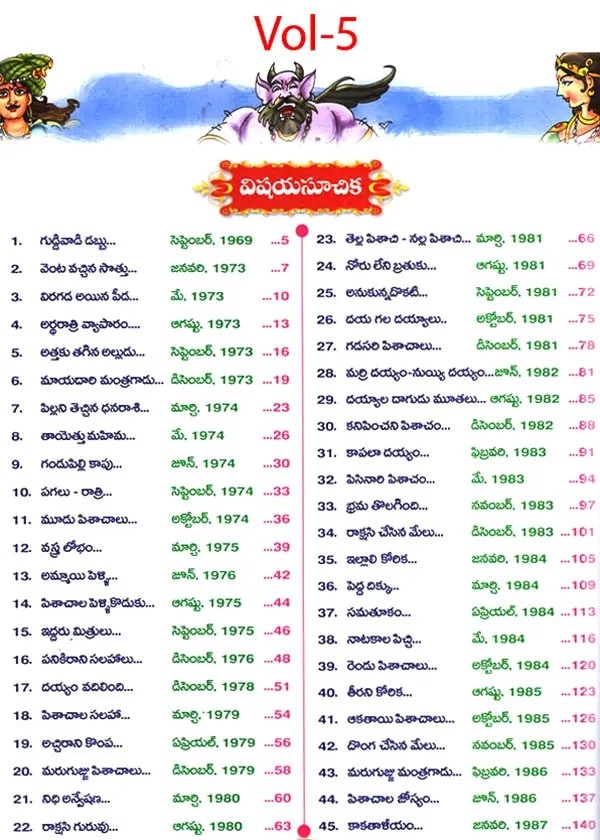 Vol-5
విషయసూచిక
1. గుడ్డివాడి డబ్బు... సెప్టెంబర్, 1969 ...5
2. వెంట వచ్చిన సొత్తు... జనవరి, 1973 ...7
3. విరగడ అయిన పీడ... మే, 1973 ...10
4. అర్థరాత్రి వ్యాపారం.... ఆగష్టు, 1973 ...13
5. అత్తకు తగిన అల్లుడు... సెప్టెంబర్, 1973 ...16
6. మాయదారి మంత్రగాడు... డిసెంబర్, 1973 ...19
7. పిల్లని తెచ్చిన ధనరాశి... మార్చి, 1974 ...23
8. తాయెత్తు మహిమ... మే, 1974 ...26
9. గండుపిల్లి కాపు... జూన్, 1974 ...30
10. పగలు - రాత్రి... సెప్టెంబర్, 1974 ...33
11. మూడు పిశాచాలు... అక్టోబర్, 1974 ...36
12. వస్త్ర లోభం... మార్చి, 1975 ...39
13. అమ్మాయి పెళ్ళి... జూన్, 1976 ...42
14. పిశాచాల పెళ్ళికొడుకు... ఆగష్టు, 1975 ...44
15. ఇద్దరు మిత్రులు... సెప్టెంబర్, 1975 ...46
16. పనికిరాని సలహాలు... డిసెంబర్, 1976 ...48
17. దయ్యం వదిలింది... డిసెంబర్, 1978 ...51
18. పిశాచాల సలహా... మార్చి, 1979 ...54
19. అచ్చిరాని కొంప... ఏప్రియల్, 1979 ...56
20. మరుగుజ్జు పిశాచాలు... డిసెంబర్, 1979 ...58
21. నిధి అన్వేషణ... మార్చి, 1980 ...60
22. రాక్షసి గురువు... ఆగష్టు, 1980 ...63
23. తెల్ల పిశాచి - నల్ల పిశాచి... మార్చి, 1981 ...66
24. నోరు లేని బ్రతుకు... ఆగష్టు, 1981 ...69
25. అనుకున్నదొకటి... సెప్టెంబర్, 1981 ...72
26. దయ గల దయ్యాలు.. అక్టోబర్, 1981 ...75
27. గడసరి పిశాచాలు... డిసెంబర్, 1981 ...78
28. మర్రి దయ్యం-నుయ్యి దయ్యం...జూన్, 1982 ...81
29. దయ్యాల దాగుడు మూతలు... ఆగష్టు, 1982 ...85
30. కనిపించని పిశాచం... డిసెంబర్, 1982 ...88
31. కాపలా దయ్యం... ఫిబ్రవరి, 1983 ...91
32. పిసినారి పిశాచం... మే, 1983 ...94
33. భ్రమ తొలగింది... నవంబర్, 1983 ...97
34. రాక్షసి చేసిన మేలు... డిసెంబర్, 1983 ...101
35. ఇల్లాలి కోరిక... జనవరి, 1984 ...105
36. పెద్ద దిక్కు... మార్చి, 1984 ...109
37. సమతూకం... ఏప్రియల్, 1984 ...113
38. నాటకాల పిచ్చి... మే, 1984 ...116
39. రెండు పిశాచాలు... అక్టోబర్, 1984 ...120
40. తీరని కోరిక... ఆగష్టు, 1985 ...123
41. ఆకతాయి పిశాచాలు... అక్టోబర్, 1985 ...126
42. దొంగ చేసిన మేలు... నవంబర్, 1985 ...130
43. మరుగుజ్జు మంత్రగాడు... ఫిబ్రవరి, 1986 ...133
44. పిశాచాల జోస్యం... జూన్, 1986 ...137
45. కాకతాళీయం... జనవరి, 1987 ...140